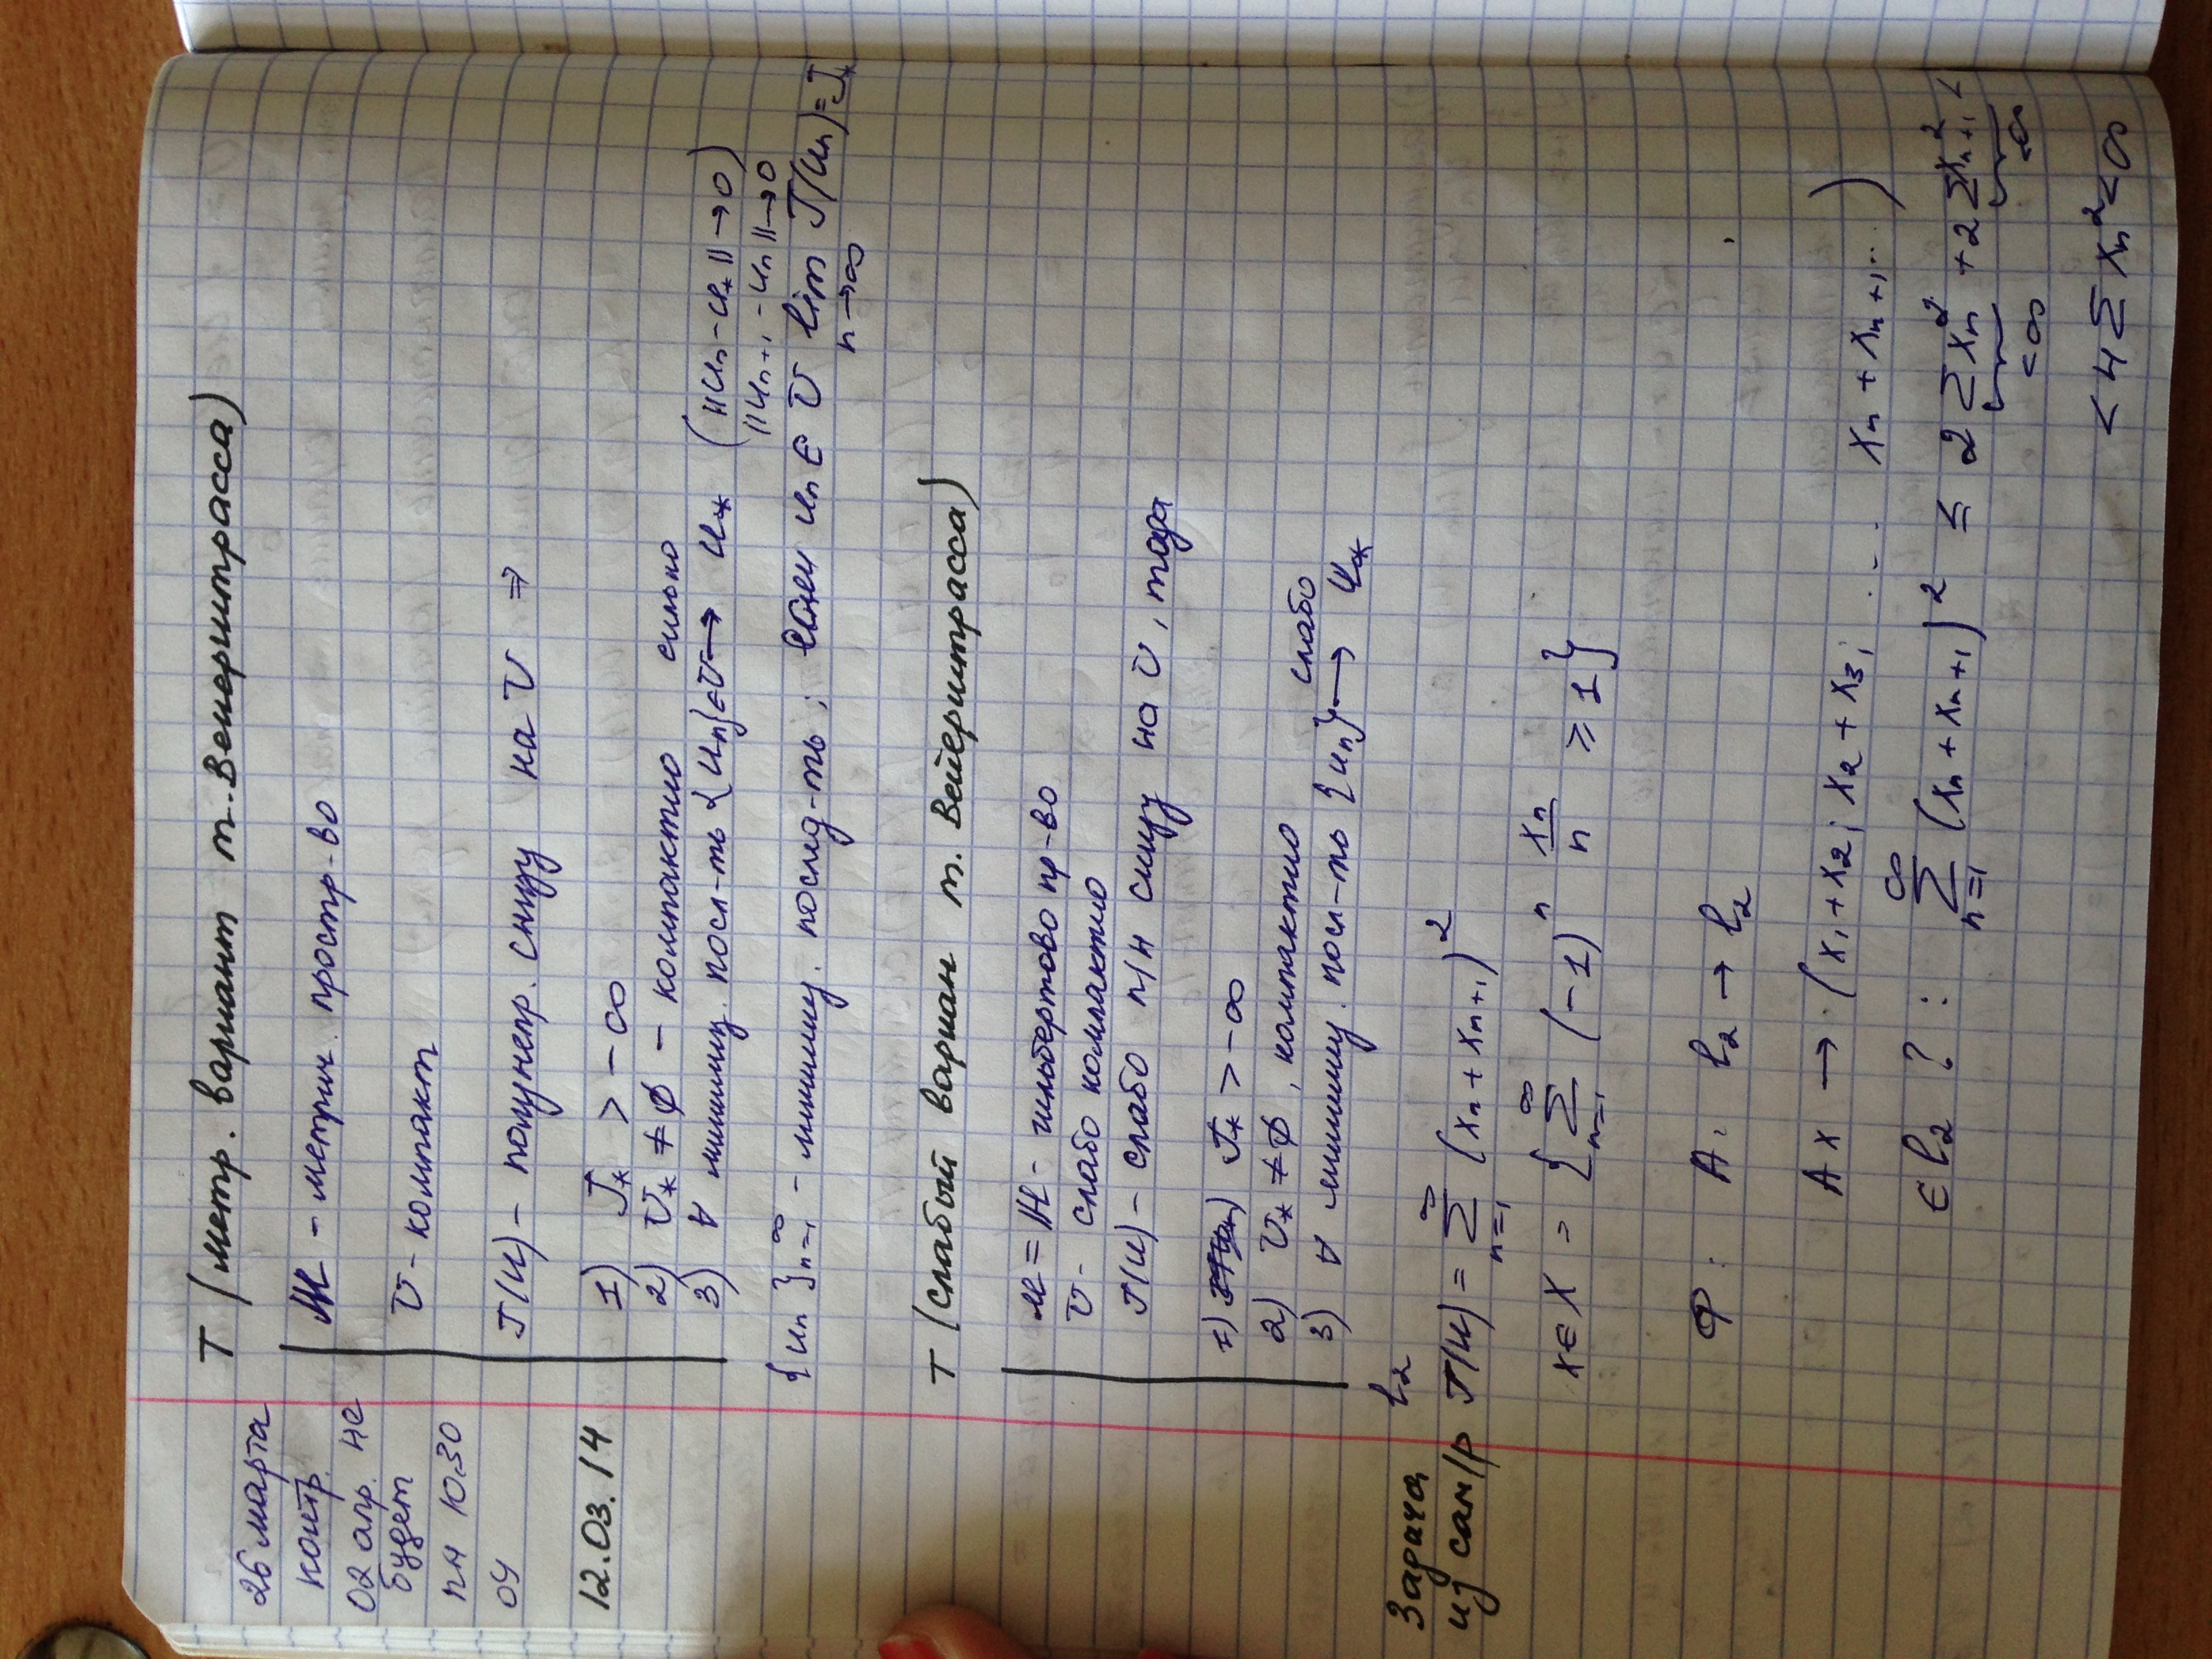 26 марта
контр.
02 апр. не
будет
пн 10.30
ОУ
12.03.14
Т (метр. вариант т. Вейерштрасса)
M - метрич. простр-во
U - компакт
J(u) - полунепр. снизу на U ⇒
1) J* > -∞
2) U* ≠ ∅ - компактно
3) ∀ миним. посл-ть {un} ∈ U → u* сильно (||un - u*|| → 0)
||un+1 - un|| → 0
{un}n=1∞ - миним. послед-ть; если un ∈ U lim n→∞ J(un) = J*
Т (слабый вариан т. Вейерштрасса)
M = H - гильбертово пр-во
U - слабо компактно
J(u) - слабо п/н снизу на U, тогда
1) J* > -∞
2) U* ≠ ∅, компактно
3) ∀ миним. посл-ть {un} → u* слабо
Задача
из сам/р
l2
J(u) = ∑n=1∞ (xn + xn+1)²
x ∈ X = {∑n=1∞ (-1)ⁿ xn/n ≥ 1}
Ф: A: l2 → l2
Ax → (x1 + x2; x2 + x3; ... xn + xn+1...)
∈ l2 ? : ∑n=1∞ (xn + xn+1)² ≤ 2∑xn² + 2∑xn+1² <
<∞ <∞
< 4∑xn² < ∞